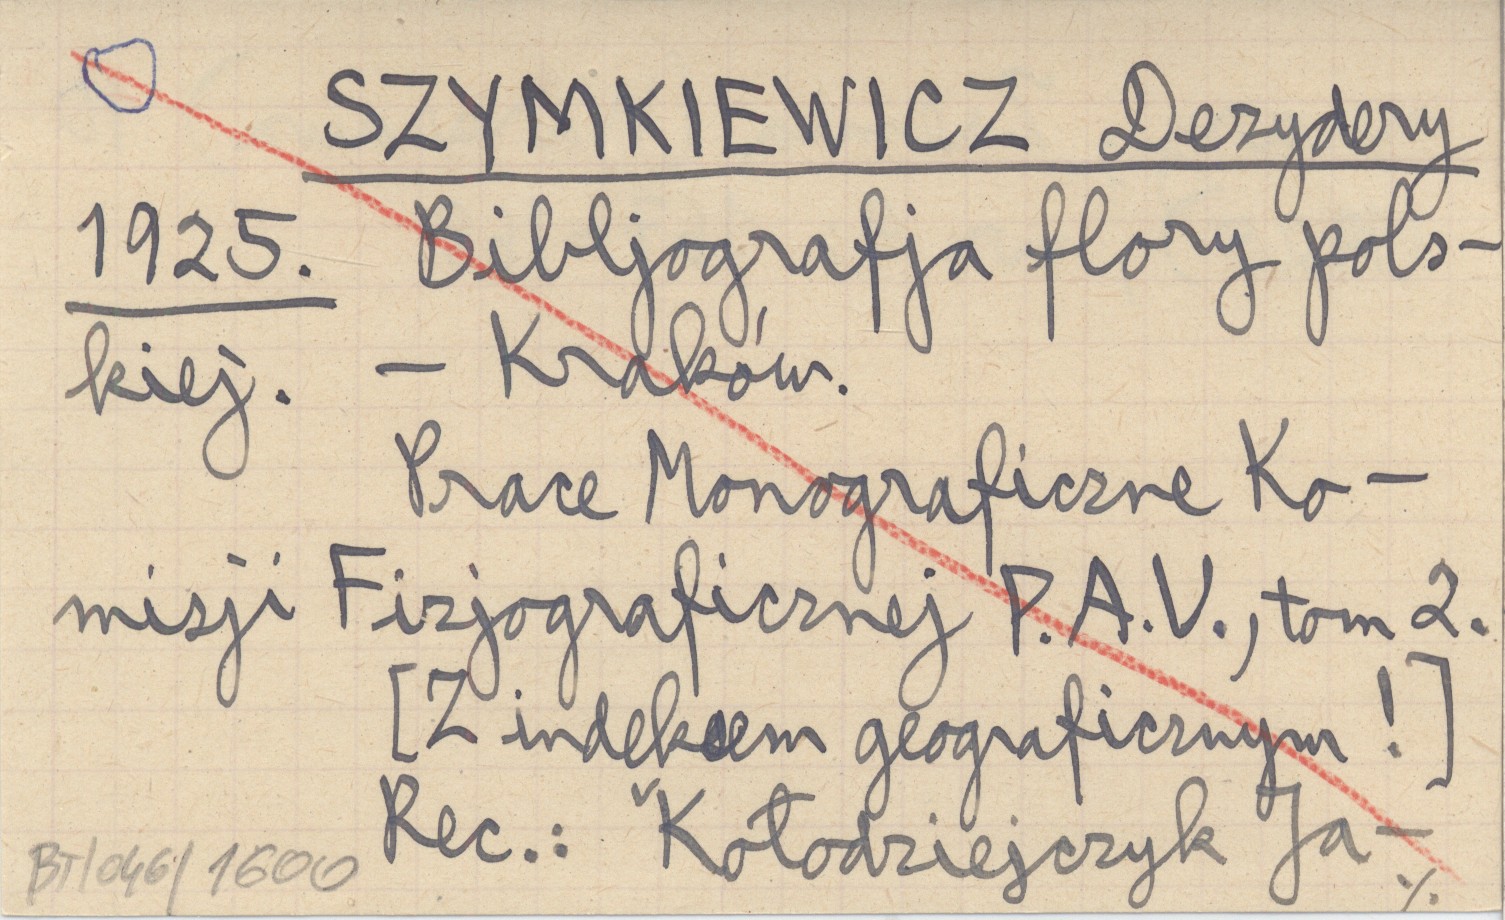 SZYMKIEWICZ Dezydery
1925. Bibljografja flory pols-
kiej. – Kraków.
Prace Monograficzne Ko-
misji Fizjograficznej P.A.U., tom 2.
[Z indeksem geograficznym!]
Rec.: Kołodziejczyk Ja-
./.
BT/046/1600